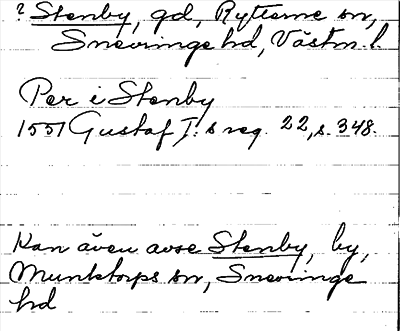 ? Stenby, gd, Rytterne sn,
Snevringe hd, Västm. l.
Per i Stenby
1551 Gustaf I:s reg. 22, s. 348.
Kan även avse Stenby, by,
Munktorps sn, Snevringe
hd